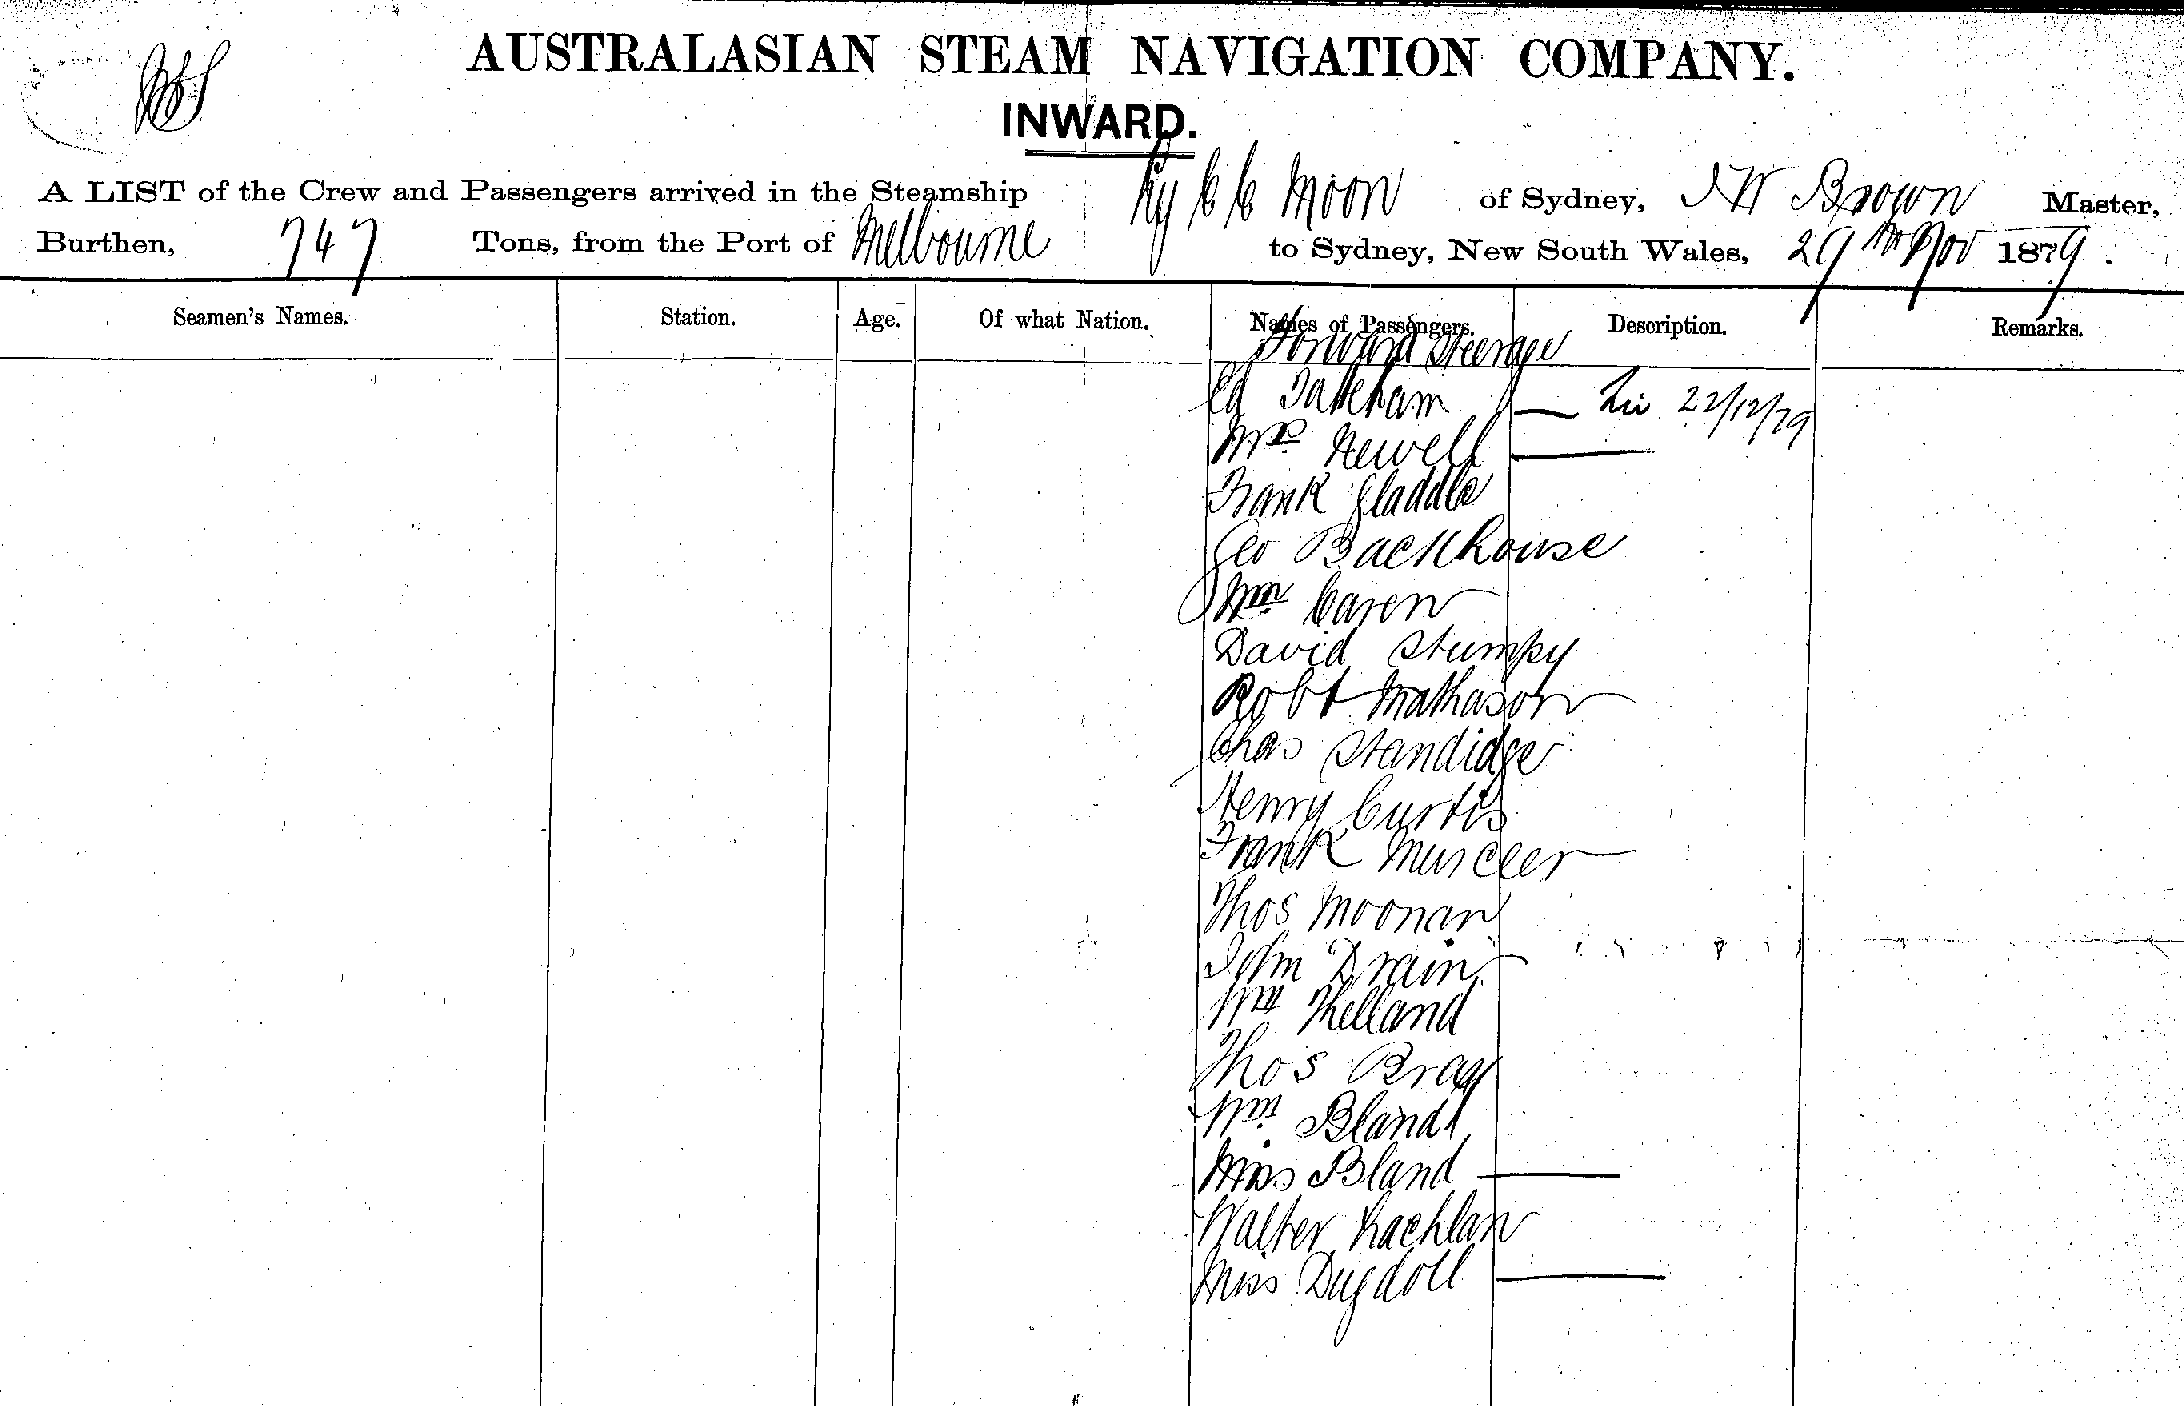 AUSTRALASIAN STEAM NAVIGATION COMPANY.
INWARD.
A LIST of the Crew and Passengers arrived in the Steamship Ly ee Moon of Sydney, Brown Master,
Burthen, 747 Tons, from the Port of Melbourne to Sydney, New South Wales, 29th Nov 1879.
Seamen's Names. Station. Age. Of what Nation. Names of Passengers. Description. Remarks.
Forward Steerage
Ed 22/12/79
Mrs Newell
Frank
Geo Backhouse
Wm Caren
David Stumpy
Robt Mathason
Chas Standidge
Henry Curtis
Frank Murceer
Thos Moonan
John Drain
Wm Kelland
Thos Bray
Wm Bland
Miss Bland
Walter Lachlan
Miss Dugdoll